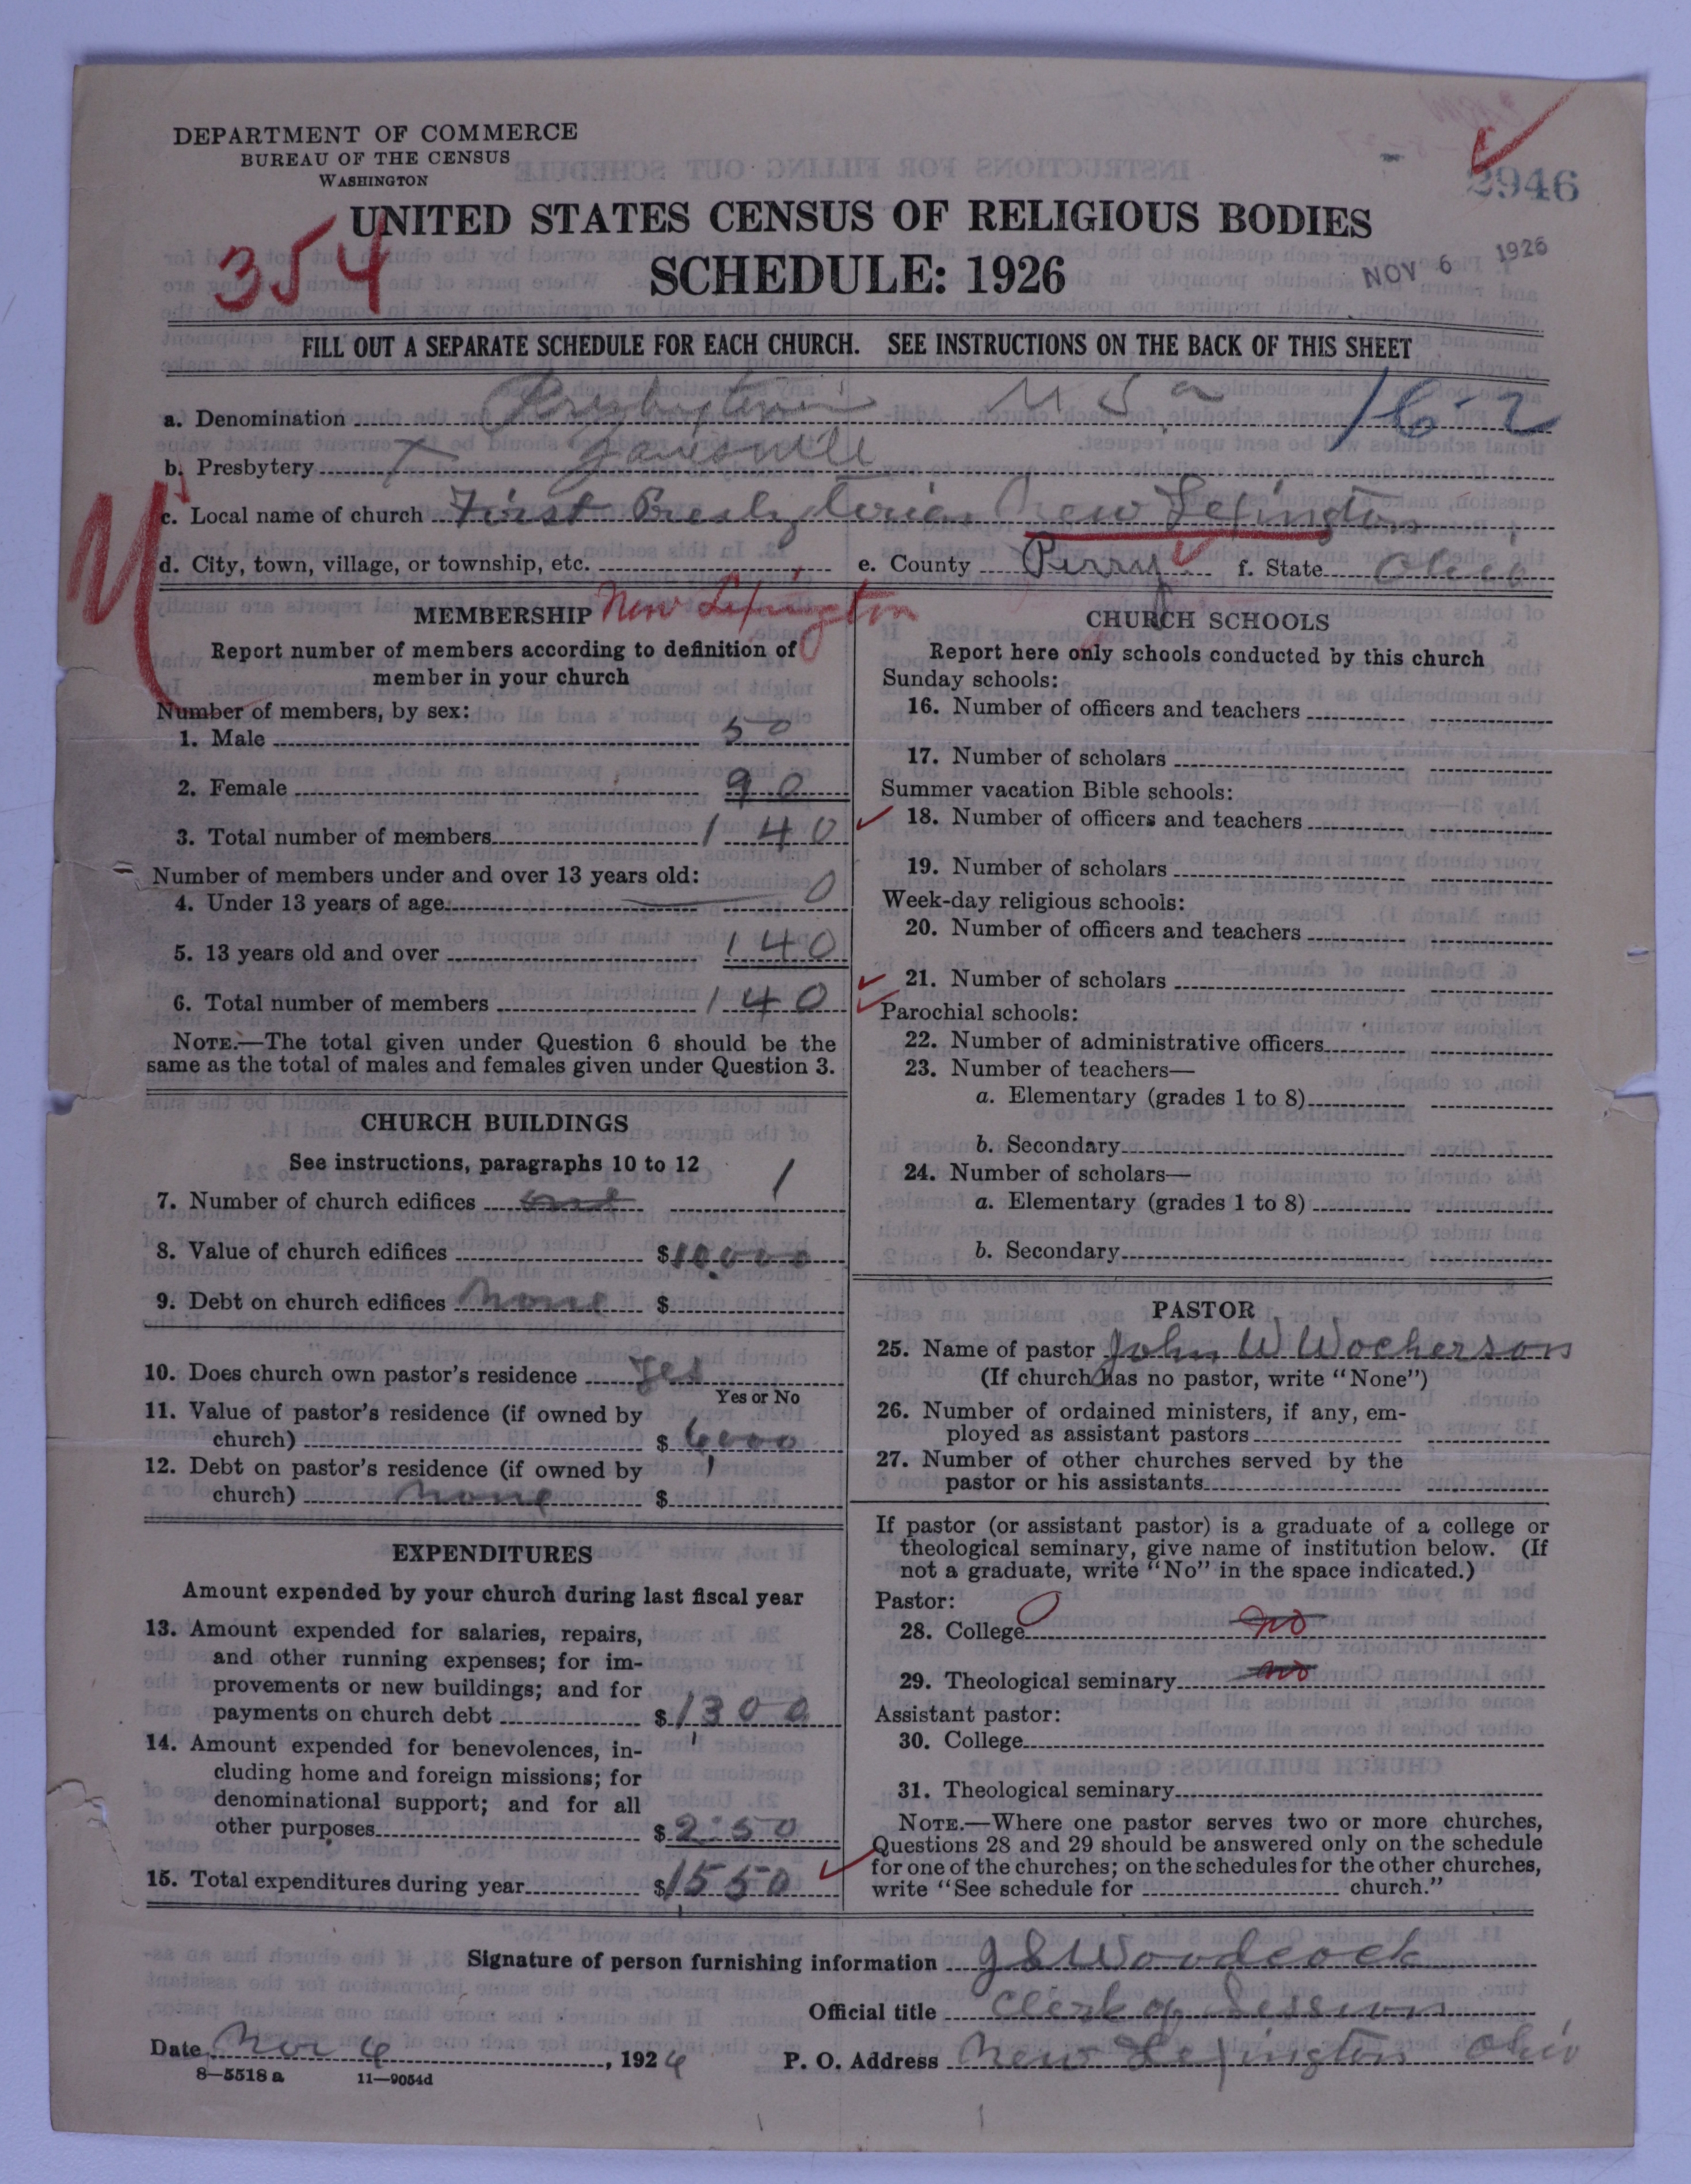 DEPARTMENT OF COMMERCE
BUREAU OF THE CENSUS
WASHINGTON
2946
UNITED STATES CENSUS OF RELIGIOUS BODIES
354
SCHEDULE: 1926
NOV 6 1926
FILL OUT A SEPARATE SCHEDULE FOR EACH CHURCH. SEE INSTRUCTIONS ON THE BACK OF THIS SHEET
a. Denomination Presbyterian U S a 16-2
b. Presbytery X Zanesville
c. Local name of church First Presbyterian New Lexington
d. City, town, village, or township, etc. e. County Perry f. State Ohio
New Lexington
MEMBERSHIP
Report number of members according to definition of
member in your church
Number of members, by sex:
1. Male 50
2. Female 90
3. Total number of members 140
Number of members under and over 13 years old:
4. Under 13 years of age 0
5. 13 years old and over 140
6. Total number of members 140
NOTE.—The total given under Question 6 should be the
same as the total of males and females given under Question 3.
CHURCH BUILDINGS
See instructions, paragraphs 10 to 12
7. Number of church edifices one 1
8. Value of church edifices $10,000
9. Debt on church edifices none $
10. Does church own pastor's residence Yes
Yes or No
11. Value of pastor's residence (if owned by
church) $ 6,000
12. Debt on pastor's residence (if owned by
church) none $
EXPENDITURES
Amount expended by your church during last fiscal year
13. Amount expended for salaries, repairs,
and other running expenses; for im-
provements or new buildings; and for
payments on church debt $ 1300
14. Amount expended for benevolences, in-
cluding home and foreign missions; for
denominational support; and for all
other purposes $ 250
15. Total expenditures during year $ 1550
CHURCH SCHOOLS
Report here only schools conducted by this church
Sunday schools:
16. Number of officers and teachers
17. Number of scholars
Summer vacation Bible schools:
18. Number of officers and teachers
19. Number of scholars
Week-day religious schools:
20. Number of officers and teachers
21. Number of scholars
Parochial schools:
22. Number of administrative officers
23. Number of teachers—
a. Elementary (grades 1 to 8)
b. Secondary
24. Number of scholars—
a. Elementary (grades 1 to 8)
b. Secondary
PASTOR
25. Name of pastor John W Wocherson
(If church has no pastor, write "None")
26. Number of ordained ministers, if any, em-
ployed as assistant pastors
27. Number of other churches served by the
pastor or his assistants
If pastor (or assistant pastor) is a graduate of a college or
theological seminary, give name of institution below. (If
not a graduate, write "No" in the space indicated.)
Pastor:
28. College no
29. Theological seminary no
Assistant pastor:
30. College
31. Theological seminary
NOTE.—Where one pastor serves two or more churches,
Questions 28 and 29 should be answered only on the schedule
for one of the churches; on the schedules for the other churches,
write "See schedule for church."
Signature of person furnishing information J E Woodcock
Official title Clerk of Session
Date Nov 6, 1926 P. O. Address New Lexington Ohio
8—5518 a 11—9054d